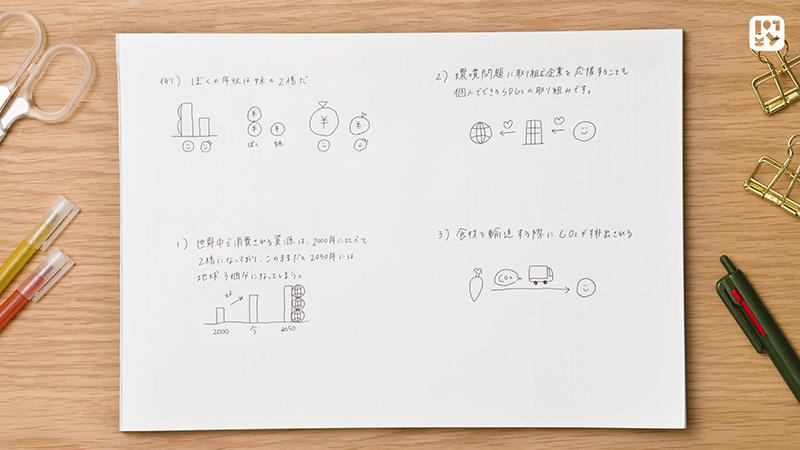 例) ぼくの年収は妹の2倍だ
¥
¥ ¥
ぼく 妹
¥ ¥
1) 世界中で消費される資源は、2000年に比べて
2倍になっており、このままだと2050年には
地球3個分になってしまう。
×2
2000 今 2050
2) 環境問題に取り組む企業を応援することも
個人でできるSDGsの取り組みです。
3) 食材を輸送する際にCO2が排出される
CO2